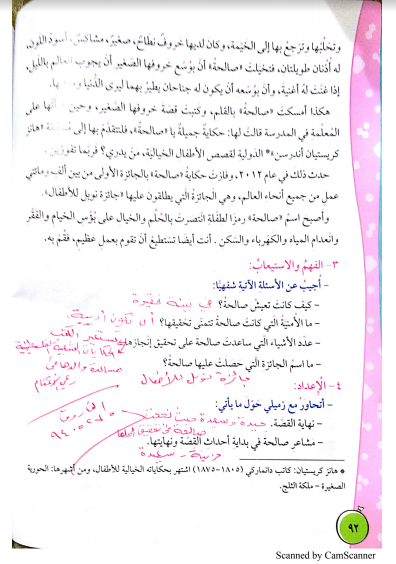 وتحلبُها وترجعُ بها إلى الخيمة، وكان لديها خروفٌ نطّاحٌ، صغيرٌ، مشاكسٌ، أسودُ اللّونِ،
له أذنان طويلتان، فتخيلتْ «صالحةُ» أنّ بوُسعِ خروفِها الصّغيرِ أنْ يجوبَ العالمَ بالليلِ،
إذا غنّتْ لهُ أغنيةً، وأنّ بوُسعِه أنْ يكونَ له جناحانِ يطيرُ بهما ليرى الدُّنيا
هكذا أمسكتْ «صالحةُ» بالقلم، وكتبتْ قصةَ خروفِها الصّغيرِ، وحين على
المعلّمة في المدرسة قالتْ لها: حكايةٌ جميلةٌ يا «صالحةُ»، فلنتقدّمْ بها إلى «هانز
كريستيان أندرسن»* الدولية لقصص الأطفال الخيالية، من يدري؟ فربما تفوزين.
حدث ذلك في عام ٢٠١٢، وفازتْ حكايةُ «صالحة» بالجائزة الأولى من بين ألف ومائتي
عملٍ من جميع أنحاء العالم، وهي الجائزةُ الّتي يطلقون عليها «جائزة نوبل للأطفال».
وأصبح اسمُ «صالحة» رمزًا لطفلةٍ انتصرتْ بالحُلْمِ والخيالِ على بُؤسِ الخيامِ والفقْرِ
وانعدامِ المياهِ والكهرباءِ والسكن. أنت أيضًا تستطيعُ أنْ تقومَ بعملٍ عظيمٍ، فقُمْ به.
٣- الفهمُ والاستيعابُ:
- أجيبُ عن الأسئلة الآتية شفهيًّا:
- كيف كانتْ تعيشُ صالحةُ؟ في بيئة فقيرة
- ما الأمنيةُ الّتي كانتْ صالحةُ تتمنّى تحقيقَها؟ أن تكون أديبة
- عدّد الأشياءَ الّتي ساعدتْ صالحةَ على تحقيقِ إنجازِها.
- ما اسمُ الجائزةِ الّتي حصلتْ عليها صالحةُ؟
جائزة نوبل للأطفال
٤- الإعدادُ:
- أتحاورُ مع زميلي حَوْلَ ما يأتي:
- نهاية القصّة. جيدة وسعيدة حيث
صالحة في تحقيق
- مشاعر صالحة في بداية أحداث القصّة ونهايتها.
حزينة - سعيدة
* هانز كريستيان: كاتب دانماركي (١٨٠٥-١٨٧٥) اشتهر بحكاياته الخيالية للأطفال، ومن أشهرها: الحورية
الصغيرة - ملكة الثلج.
٩٢
Scanned by CamScanner